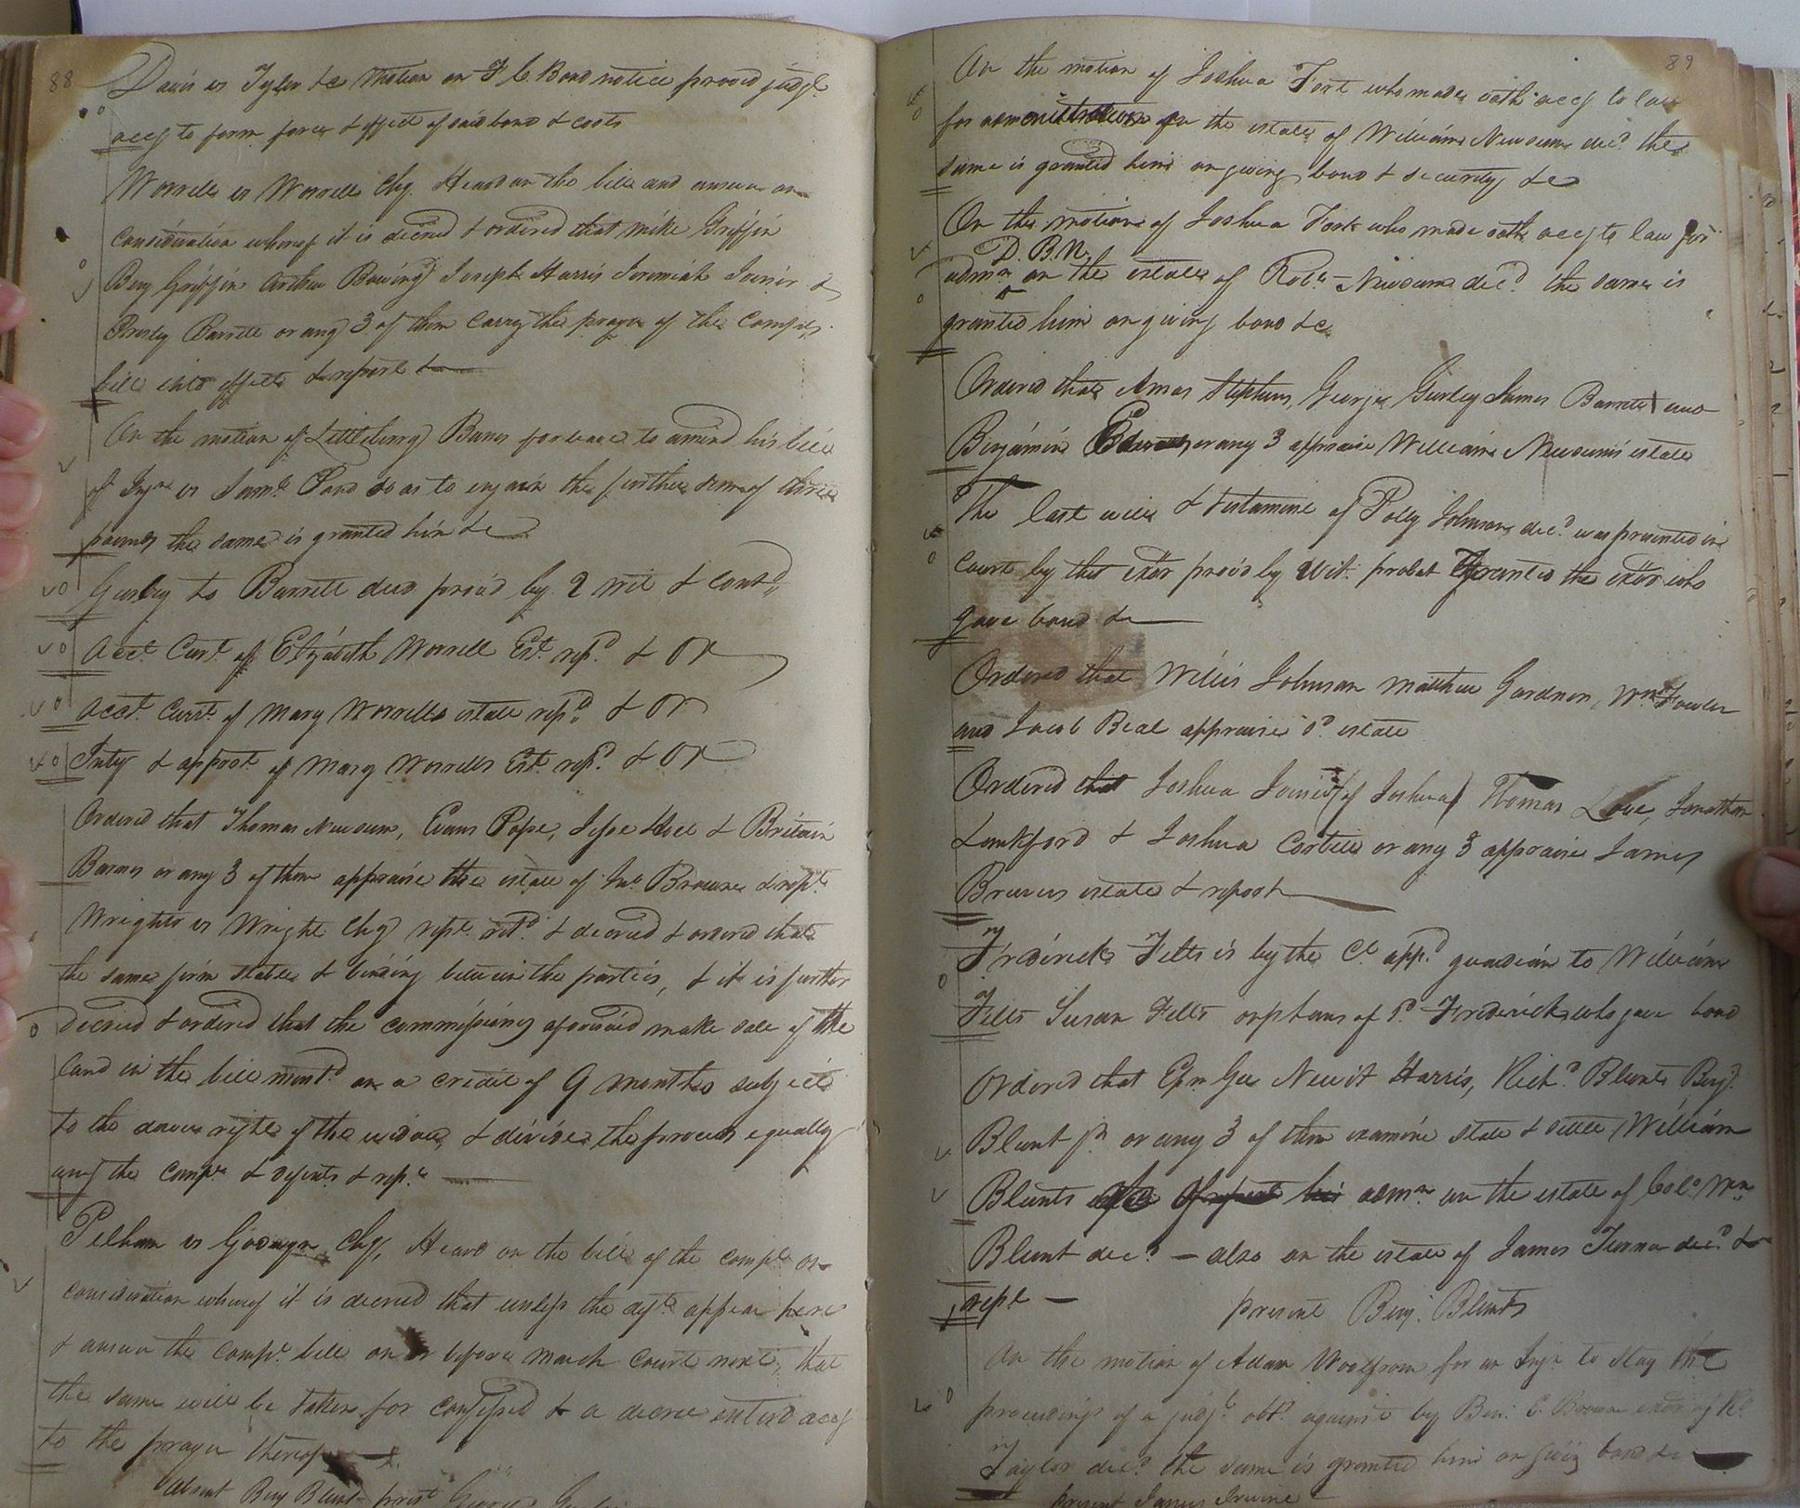 88
Davis vs Tyler &c Motion on F. C. Bond notice proved judgt
accg to form force & effect of said bond & costs
Worrells vs Worrells Chy. Heard on the bill and answer on
Consideration whereof it is decreed & ordered that Mike Griffin
Benj Griffin Arthur Joseph Harris Jeremiah Joiner &
Barrett or any 3 of them carry the prayer of the Compts
bill into effect & report &c
On the motion of Littleberry Barns for leave to amend his bill
of Injn vs Saml so as to enjoin the further sum of three
pounds the same is granted him &c
Gurley to Barrett deed provd by 2 wit & contd
Acct Curt of Elizabeth Worrell Est rep.d & OR
Acct. Currt of Mary Worrells estate rep.d & OR
Invty & appraist of Mary Worrells Est. rep.d & OR
Ordered that Thomas Newsum, Evans Pope, Jesse & Britain
Barnes or any 3 of them appraise the estate of Browne & rept
Wrights vs Wright Chy rept retd & decreed & ordered that
the same firm stable & binding between the parties, & it is further
decreed & ordered that the commissioners aforesaid make sale of the
land in the bill mentd on a credit of 9 months subject
to the dower right of the widow & divide the proceeds equally
amg the compts & defents & rept
Pelham vs Chy. Heard on the bill of the compt on
consideration whereof it is decreed that unless the deft appear here
& answer the compt bill on or before March Court next, that
the same will be taken for confessed & a decree entered accg
to the prayer thereof &c.
absent Benj Blunt prest George Gurley
89
On the motion of Joshua Fort who made oath accg to law
for administration on the estate of William Newsum decd the
same is granted him on giving bond & security &c
On the motion of Joshua Fort who made oath accg to law for
D. B. N.
admn on the estate of Robt Newsum decd the same is
granted him on giving bond &c
Ordered that Amos Stephens, George Gurley James Barrett and
Benjamin or any 3 appraise William Newsum's estate
The last will & testament of Polly Johnson decd was presented in
Court by the exor provd by Wit. probat granted the exor who
gave bond &c
Ordered that Willis Johnson Matthew Gardner, Wm Fowler
and Jacob Beal appraise sd estate
Ordered that Joshua Joiner (of Joshua) Thomas Love, Jonathan
Lankford & Joshua or any 3 appraise James
estate & report
Frederick Felts is by the Ct appd guardian to William
Felts Susan Felts orphans of sd Frederick who gave bond
Ordered that Gee Newit Harris, Richd Blunt Benj.
Blunt jr or any 3 of them examine state & settle William
Blunts admn on the estate of Colo Wm
Blunt decd — also on the estate of James Turner decd &
rept —
present Benj. Blunt
On the motion of Adam Woolfrom for an Injn to stay the
proceedings of a judgt obtd against by Benj. C. Browne exor of
Taylor decd the same is granted him on givig bond &c
present James